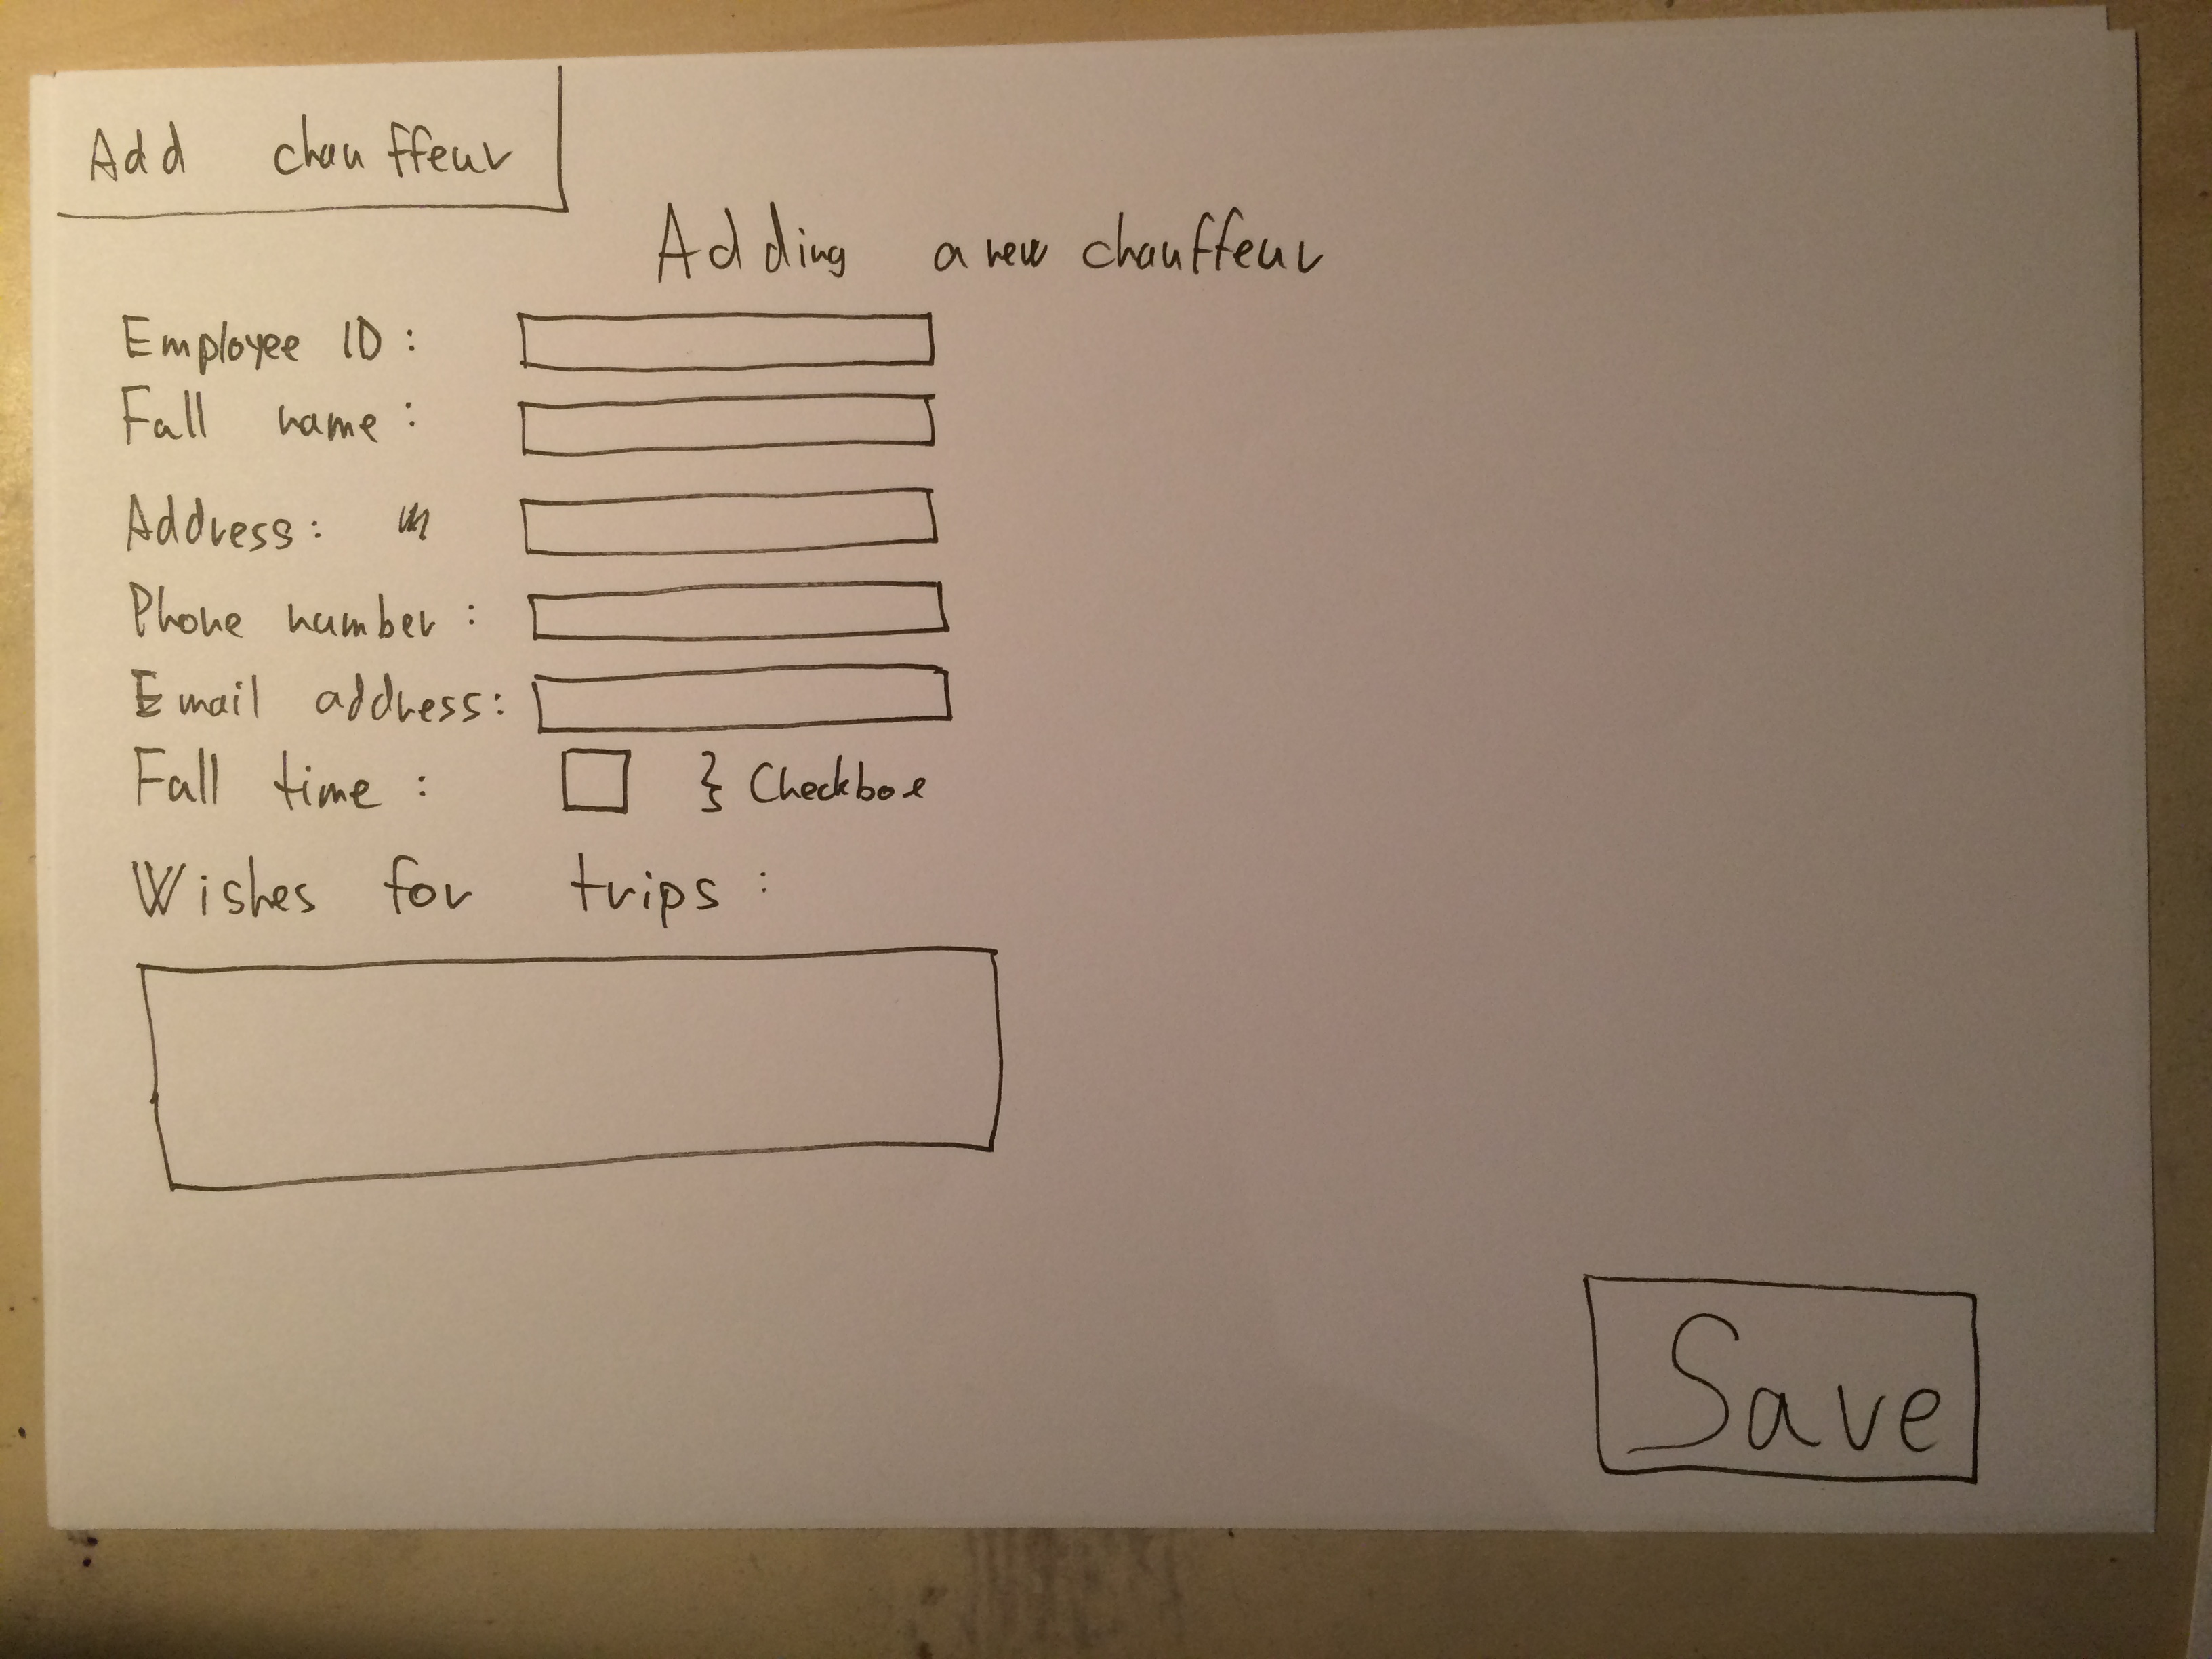 Add chauffeur
Adding a new chauffeur
Employee ID:
Full name:
Address:
Phone number:
Email address:
Full time: } Checkbox
Wishes for trips:
Save